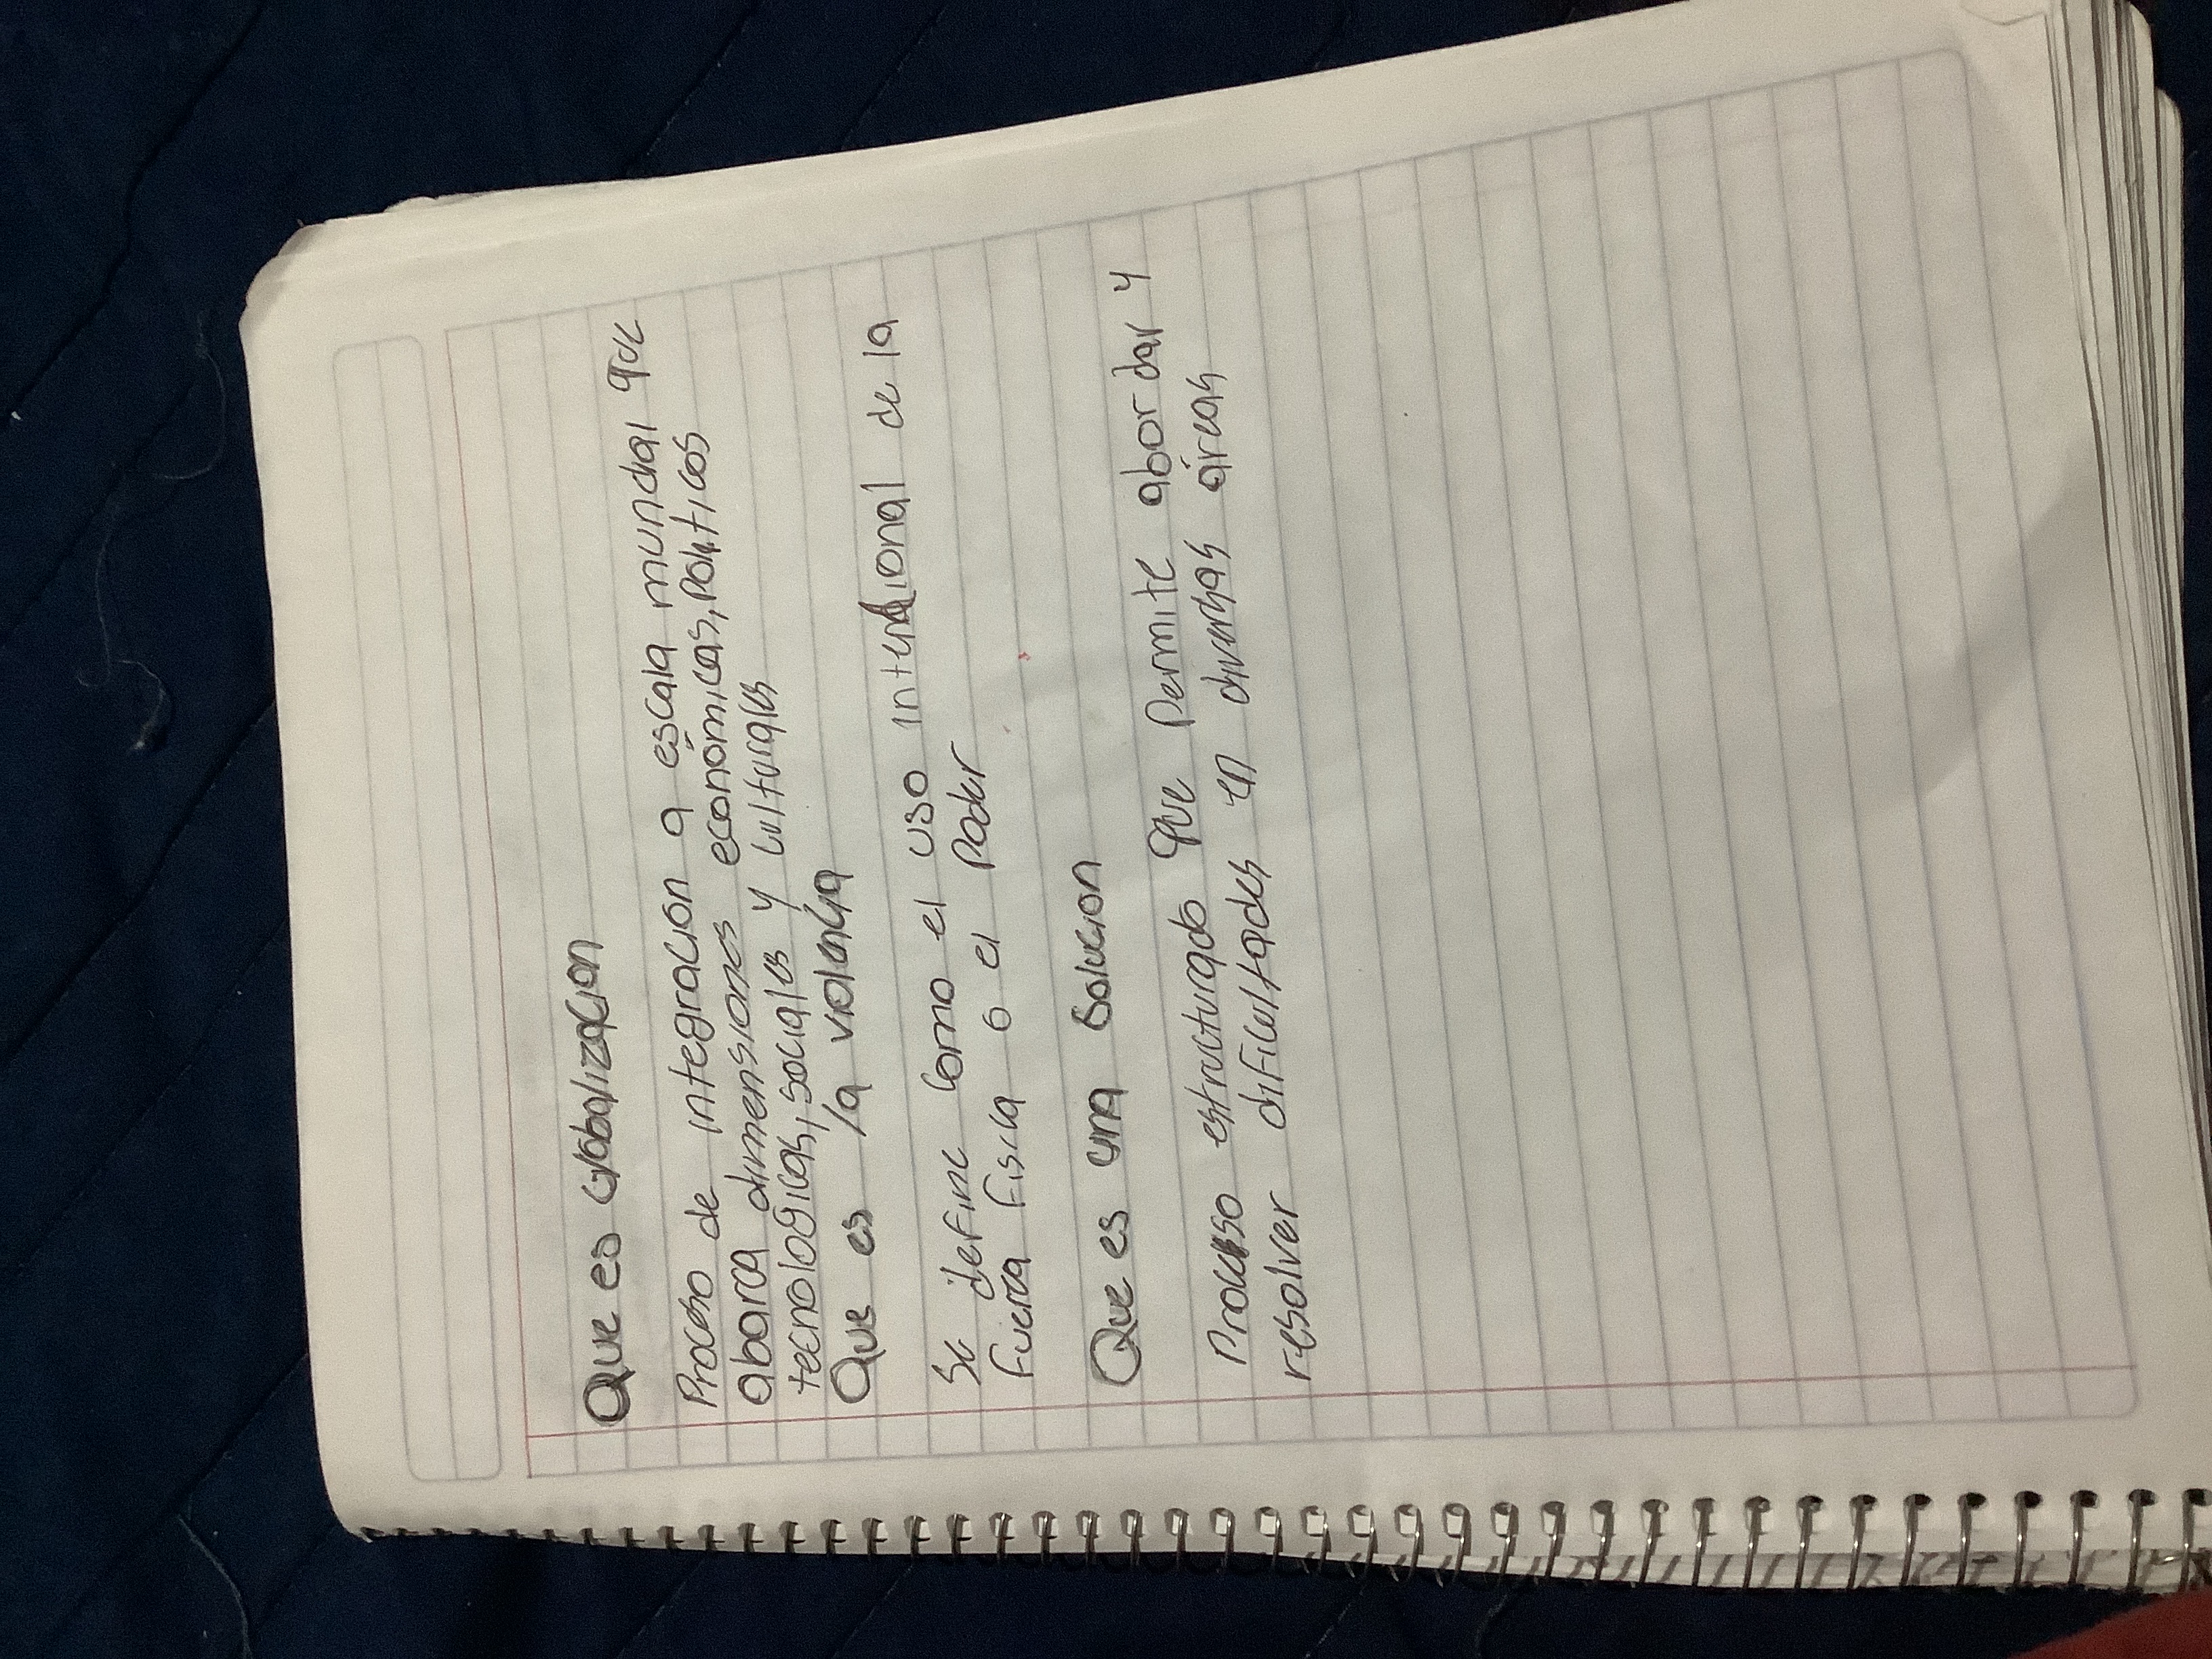 Que es Globalización
Proceso de integración a escala mundial que
abarca dimensiones económicas, políticos
tecnológicas, sociales y culturales
Que es la violencia
Se define como el uso intencional de la
fuerza física o el poder
Que es una solucion
Proceso estructurado que permite abordar y
resolver dificultades en diversas áreas